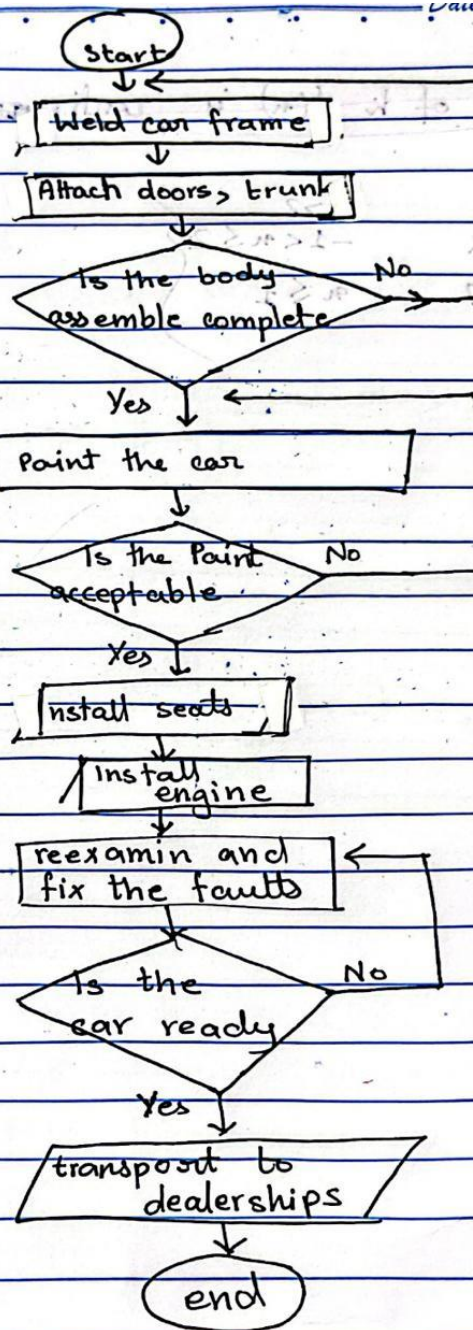 Date
Start
Weld car frame
Attach doors, trunk
Is the body
No
assemble complete
Yes
Paint the car
Is the Paint
No
acceptable
Yes
Install seats
Install
engine
reexamin and
fix the faults
Is the
No
car ready
Yes
transport to
dealerships
end